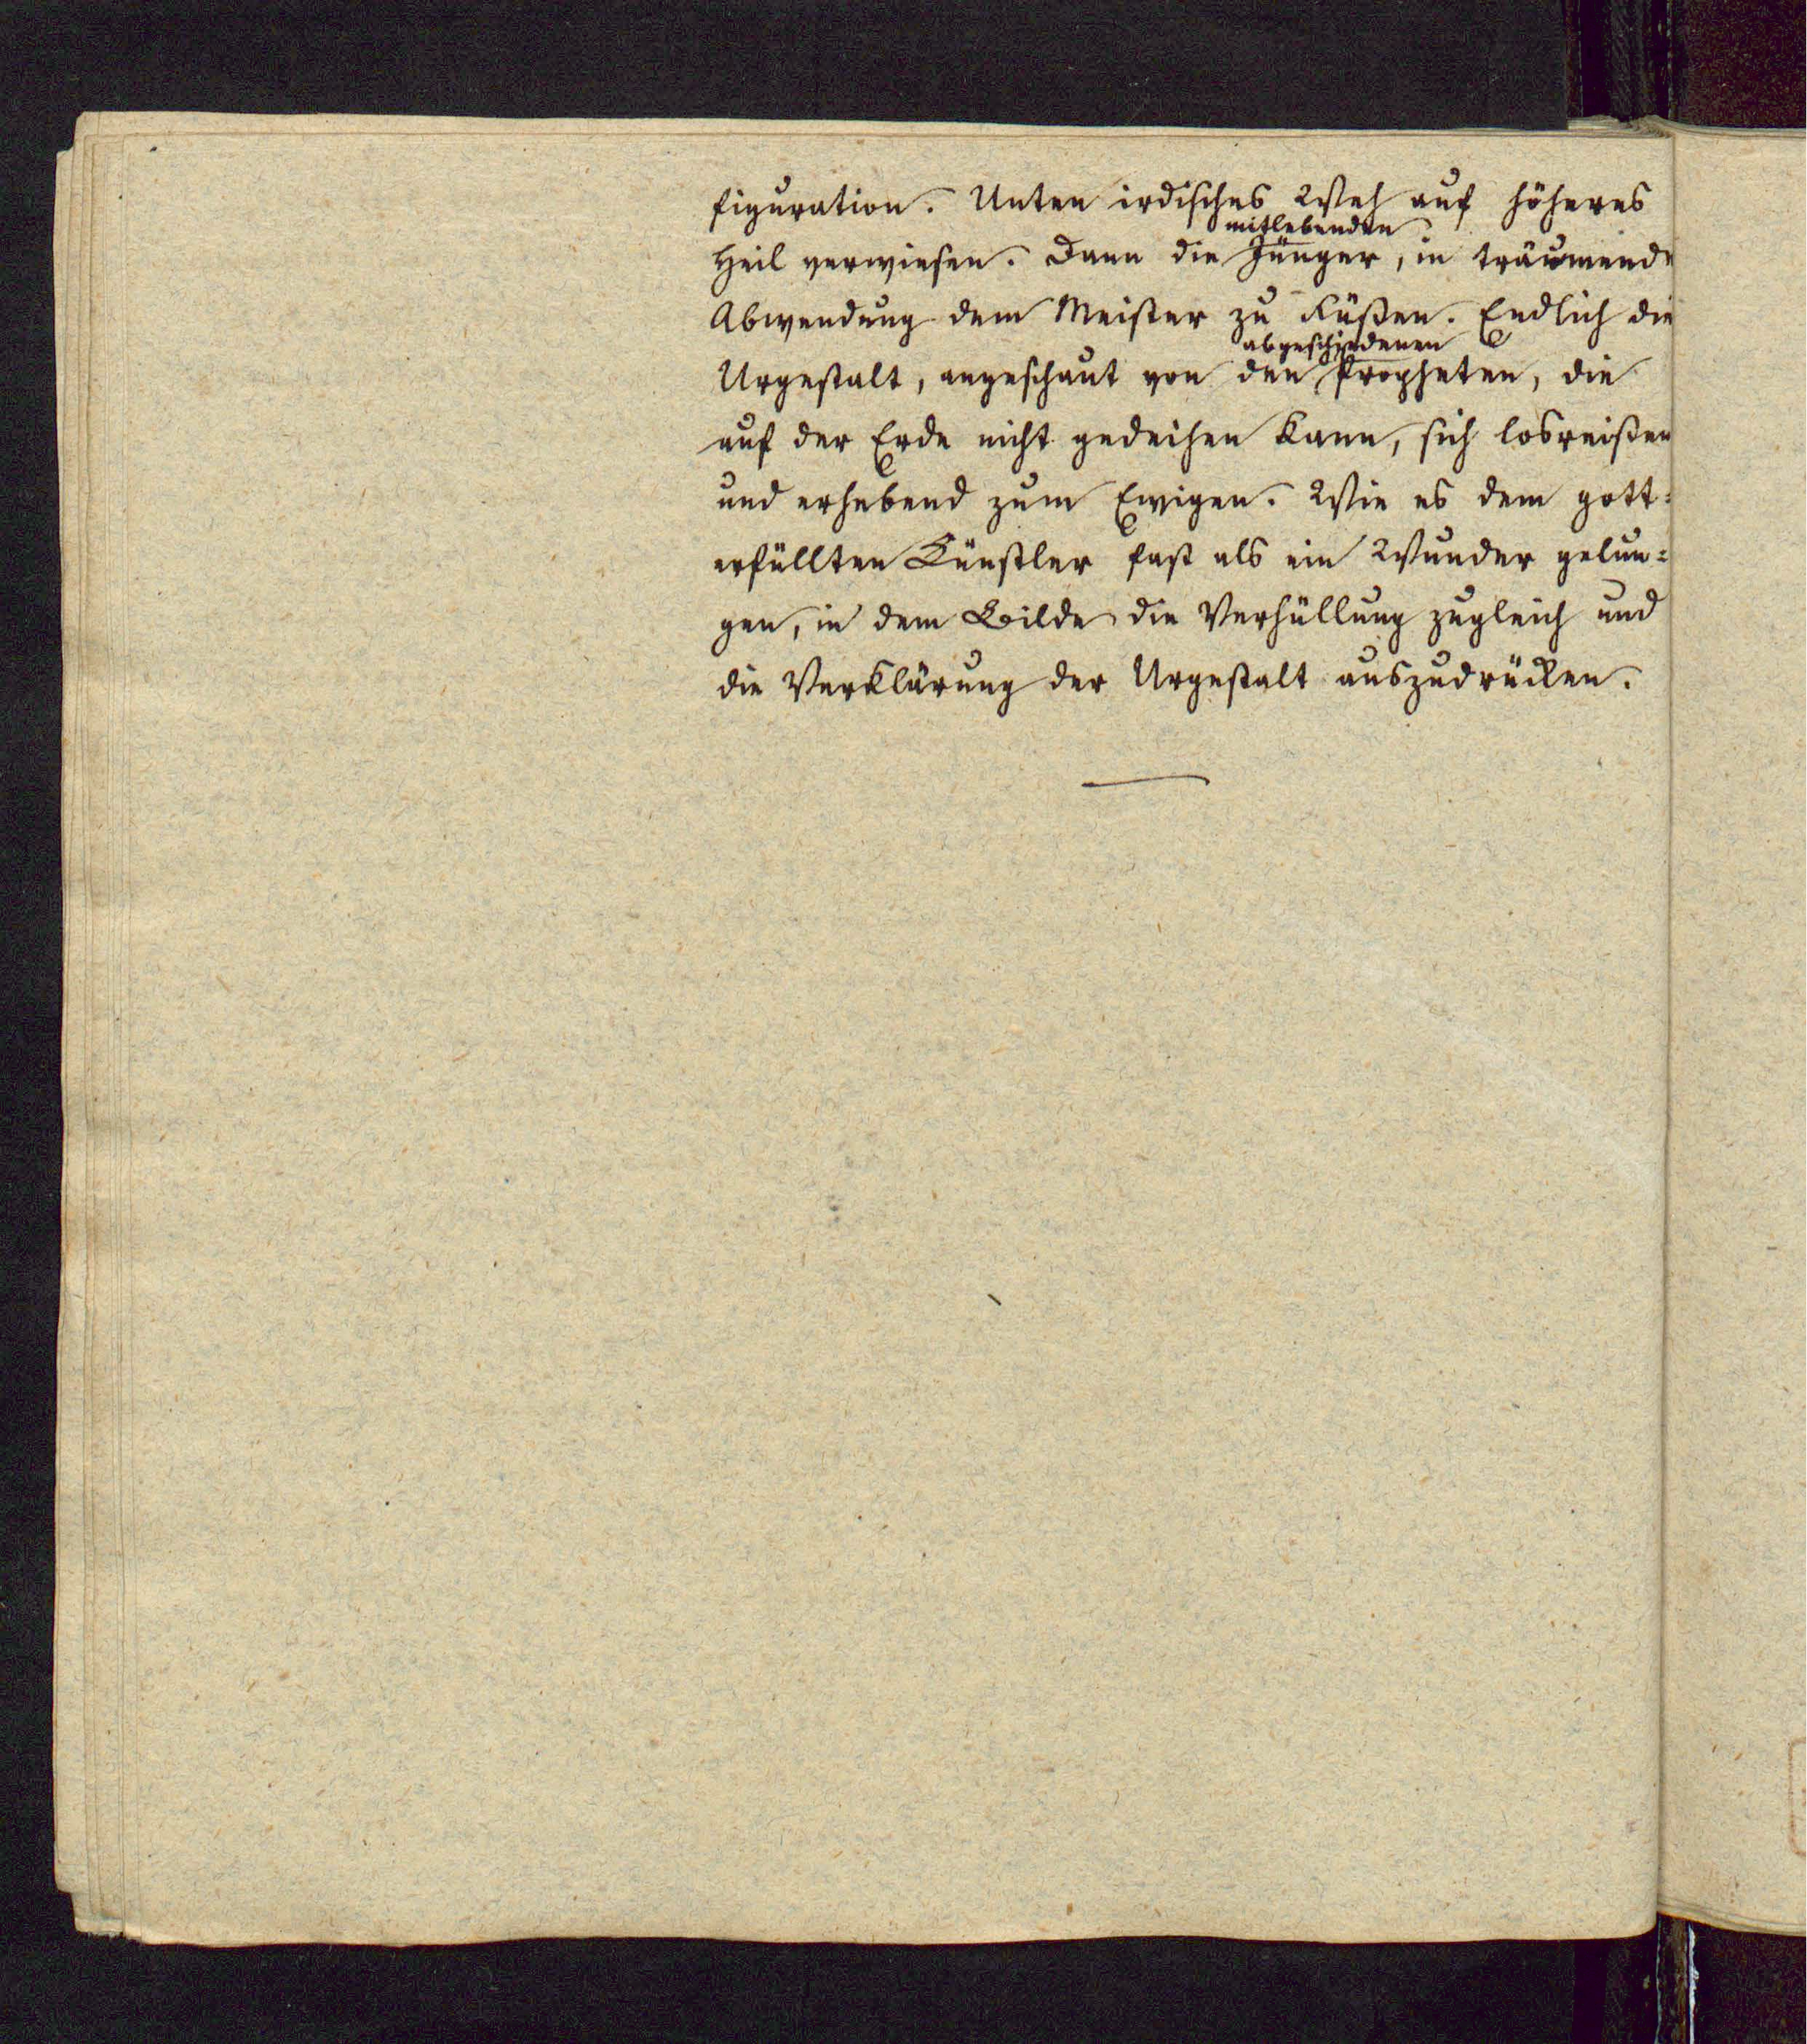 figuration. Unten irdisches Weh auf höheres
mitlebenden
Heil verwiesen. Dann die Jünger, in träumende
Abwendung dem Meister zu Füßen. Endlich die
abgeschiedenen
Urgestalt, angeschaut von den Propheten, die
auf der Erde nicht gedeihen kann, sich losreißen
und erhebend zum Ewigen. Wie es dem gott=
erfüllten Künstler fast als ein Wunder gelun=
gen, in dem Bilde die Verhüllung zugleich und
die Verklärung der Urgestalt auszudrücken.